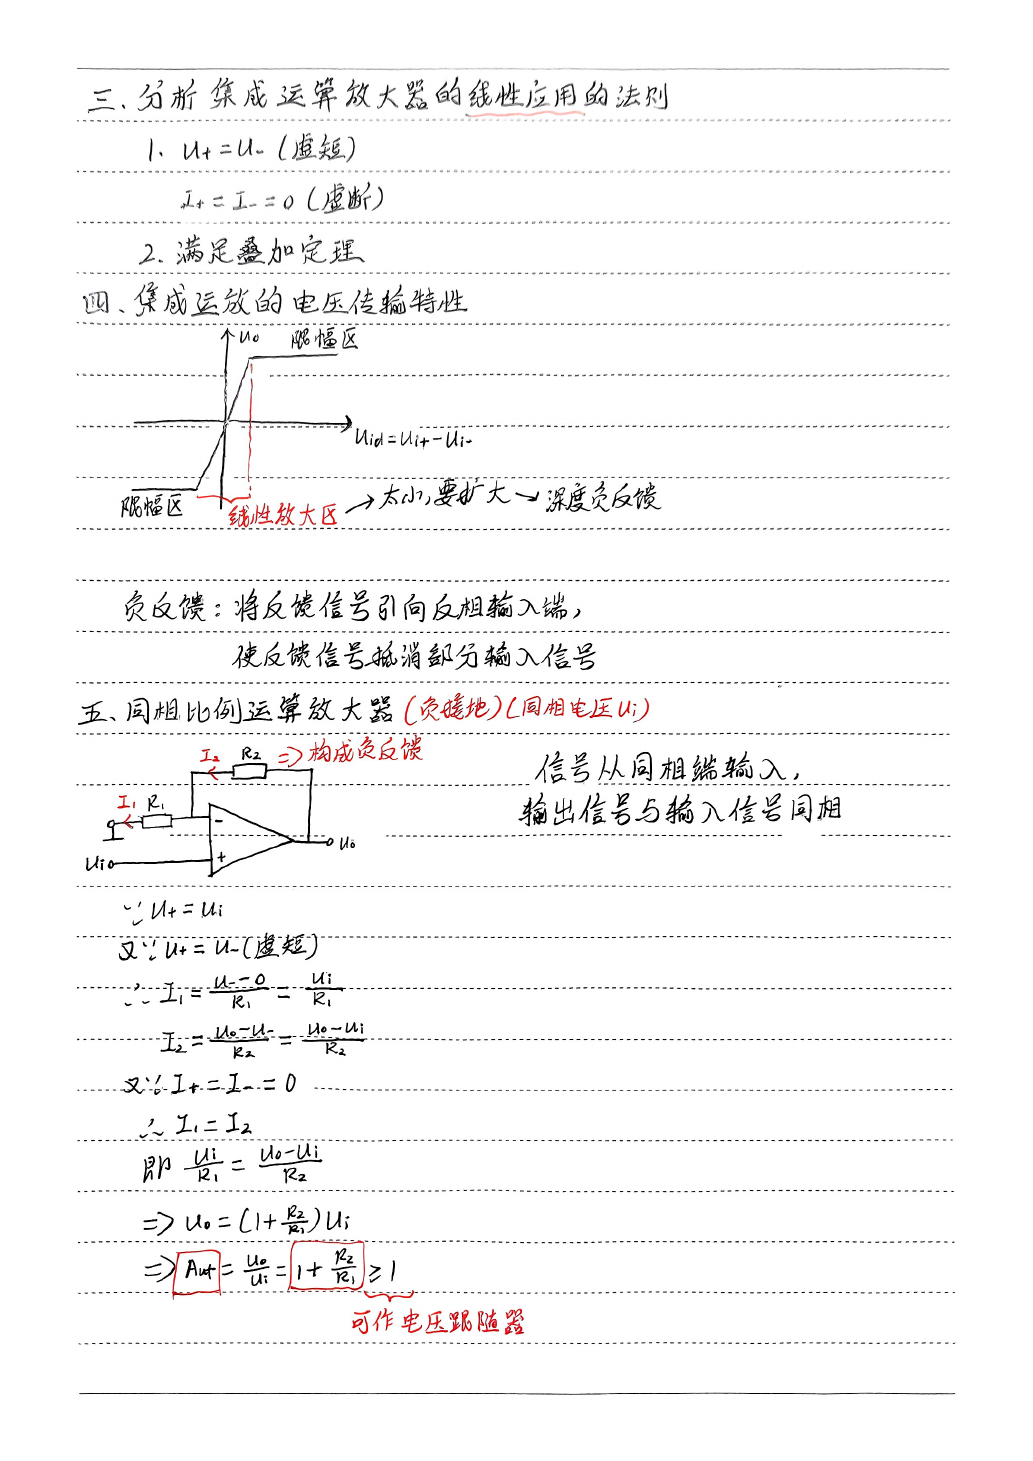 三、分析集成运算放大器的线性应用的法则
1. U+=U- (虚短)
I+=I-=0 (虚断)
2. 满足叠加定理
四、集成运放的电压传输特性
Uo 限幅区
Uid=Ui+-Ui-
限幅区 线性放大区 → 太小,要扩大 → 深度负反馈
负反馈：将反馈信号引向反相输入端，
使反馈信号抵消部分输入信号
五、同相比例运算放大器(负接地)(同相电压Ui)
I2 R2 => 构成负反馈
信号从同相端输入，
I1 R1 -
输出信号与输入信号同相
Ui + Uo
∵ U+=Ui
又∵ U+=U-(虚短)
∴ I1=(U--0)/R1=Ui/R1
I2=(Uo-U-)/R2=(Uo-Ui)/R2
又∵ I+=I-=0
∴ I1=I2
即 Ui/R1=(Uo-Ui)/R2
=> Uo=(1+R2/R1)Ui
=> Auf=Uo/Ui=1+R2/R1≥1
可作电压跟随器